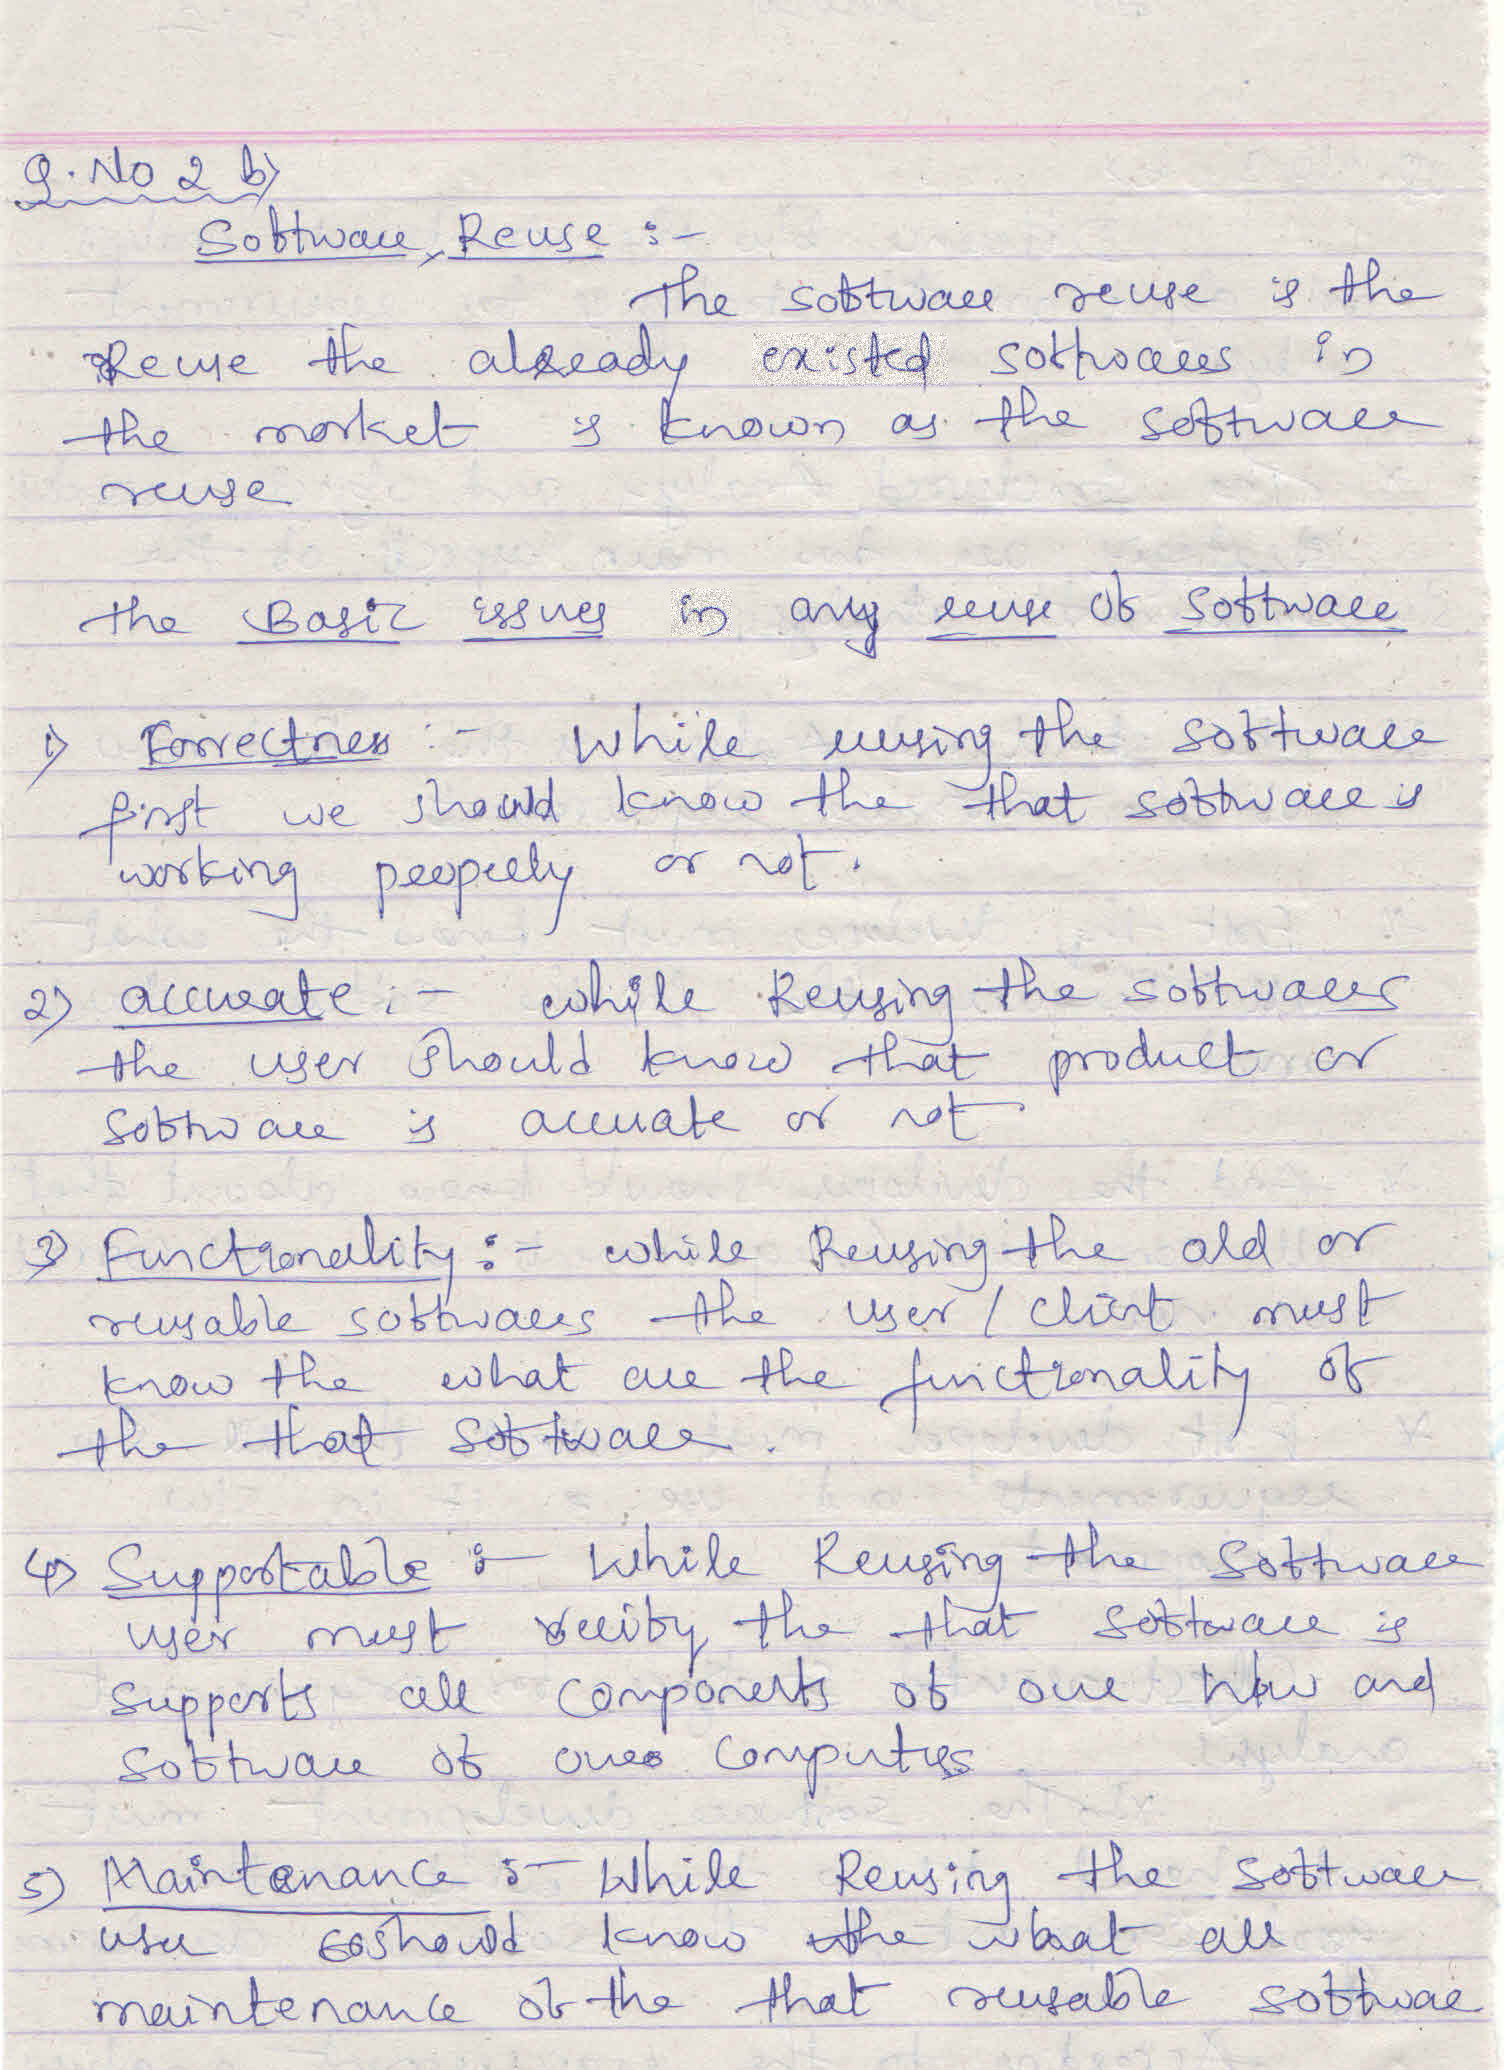 Q. No 2 b)
Software Reuse :-
The software reuse is the
Reuse the already existed softwares in
the market is known as the software
reuse
the Basic issues in any reuse of software
1) Correctness :- While reusing the software
first we should know the that software is
working properly or not.
2) accurate :- while Reusing the softwares
the user should know that product or
software is accurate or not
3) Functionality :- while Reusing the old or
reusable softwares the user / client must
know the what are the functionality of
the that software.
4) Supportable :- While Reusing the software
user must verify the that software is
supports all components of our h/w and
software of our computers
5) Maintenance :- While Reusing the software
user should know the what all
maintenance of the that reusable software